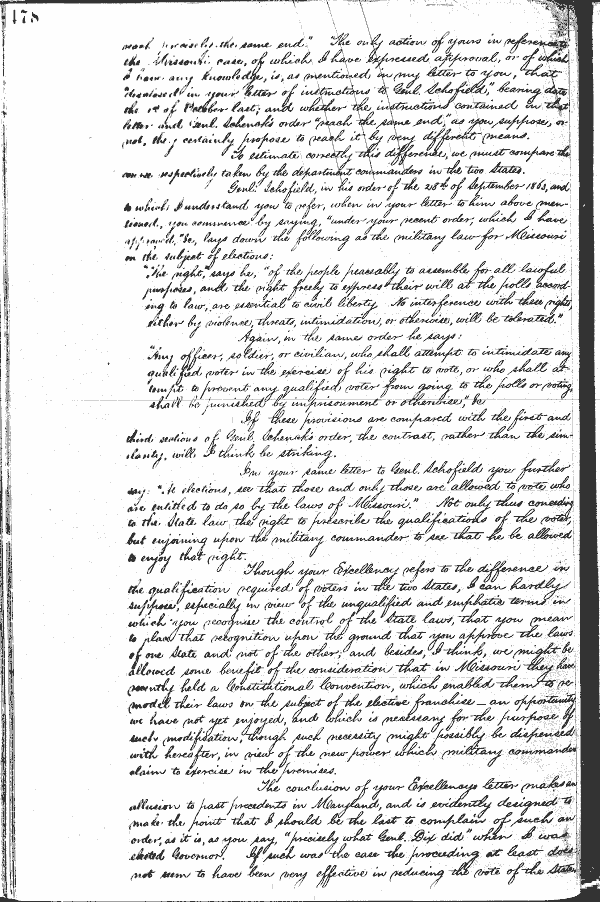 478
reach precisely the same end." The only action of yours in reference to
the Missouri case, of which I have expressed approval, or of which
I have any knowledge, is, as mentioned in my letter to you, that
"disclosed in your letter of instructions to Genl. Schofield," bearing date
the 1st of October last; and whether the instructions contained in that
letter and Genl. Schenck's order "reach the same end," as you suppose, or
not, they certainly propose to reach it by very different means.
To estimate correctly this difference, we must compare the
course respectively taken by the department commanders in the two States.
Genl. Schofield, in his order of the 28th of September 1863, and
to which I understand you to refer, when in your letter to him above men-
tioned, you commence by saying, "under your recent order, which I have
approved," &c, lays down the following as the military law for Missouri
on the subject of elections:
"The right," says he, "of the people peacably to assemble for all lawful
purposes, and the right freely to express their will at the polls accord-
ing to law, are essential to civil liberty. No interference with these rights
either by violence, threats, intimidation, or otherwise, will be tolerated."
Again, in the same order he says:
"Any officer, soldier, or civilian, who shall attempt to intimidate any
qualified voter in the exercise of his right to vote, or who shall at-
tempt to prevent any qualified voter from going to the polls or voting
shall be punished by imprisonment or otherwise," &c
If these provisions are compared with the first and
third sections of Genl. Schenck's order, the contrast, rather than the sim-
ilarity, will I think be striking.
In your same letter to Genl. Schofield you further
say: "At elections, see that those and only those are allowed to vote who
are entitled to do so by the laws of Missouri." Not only thus conceding
to the State law the right to prescribe the qualifications of the voter,
but enjoining upon the military commander to see that he be allowed
to enjoy that right.
Though your Excellency refers to the difference in
the qualification required of voters in the two States, I can hardly
suppose, especially in view of the unqualified and emphatic terms in
which you recognise the control of the State laws, that you mean
to place that recognition upon the ground that you approve the laws
of one State and not of the other; and besides, I think, we might be
allowed some benefit of the consideration that in Missouri they have
recently held a Constitutional Convention, which enabled them to re-
model their laws on the subject of the elective franchise — an opportunity
we have not yet enjoyed, and which is necessary for the purpose of
such modification, though such necessity might possibly be dispensed
with hereafter, in view of the new power which military commanders
claim to exercise in the premises.
The conclusion of your Excellency's letter makes an
allusion to past precedents in Maryland, and is evidently designed to
make the point that I should be the last to complain of such an
order, as it is, as you say, "precisely what Genl. Dix did" when I was
elected Governor. If such was the case the proceeding at least does
not seem to have been very effective in reducing the vote of the State,